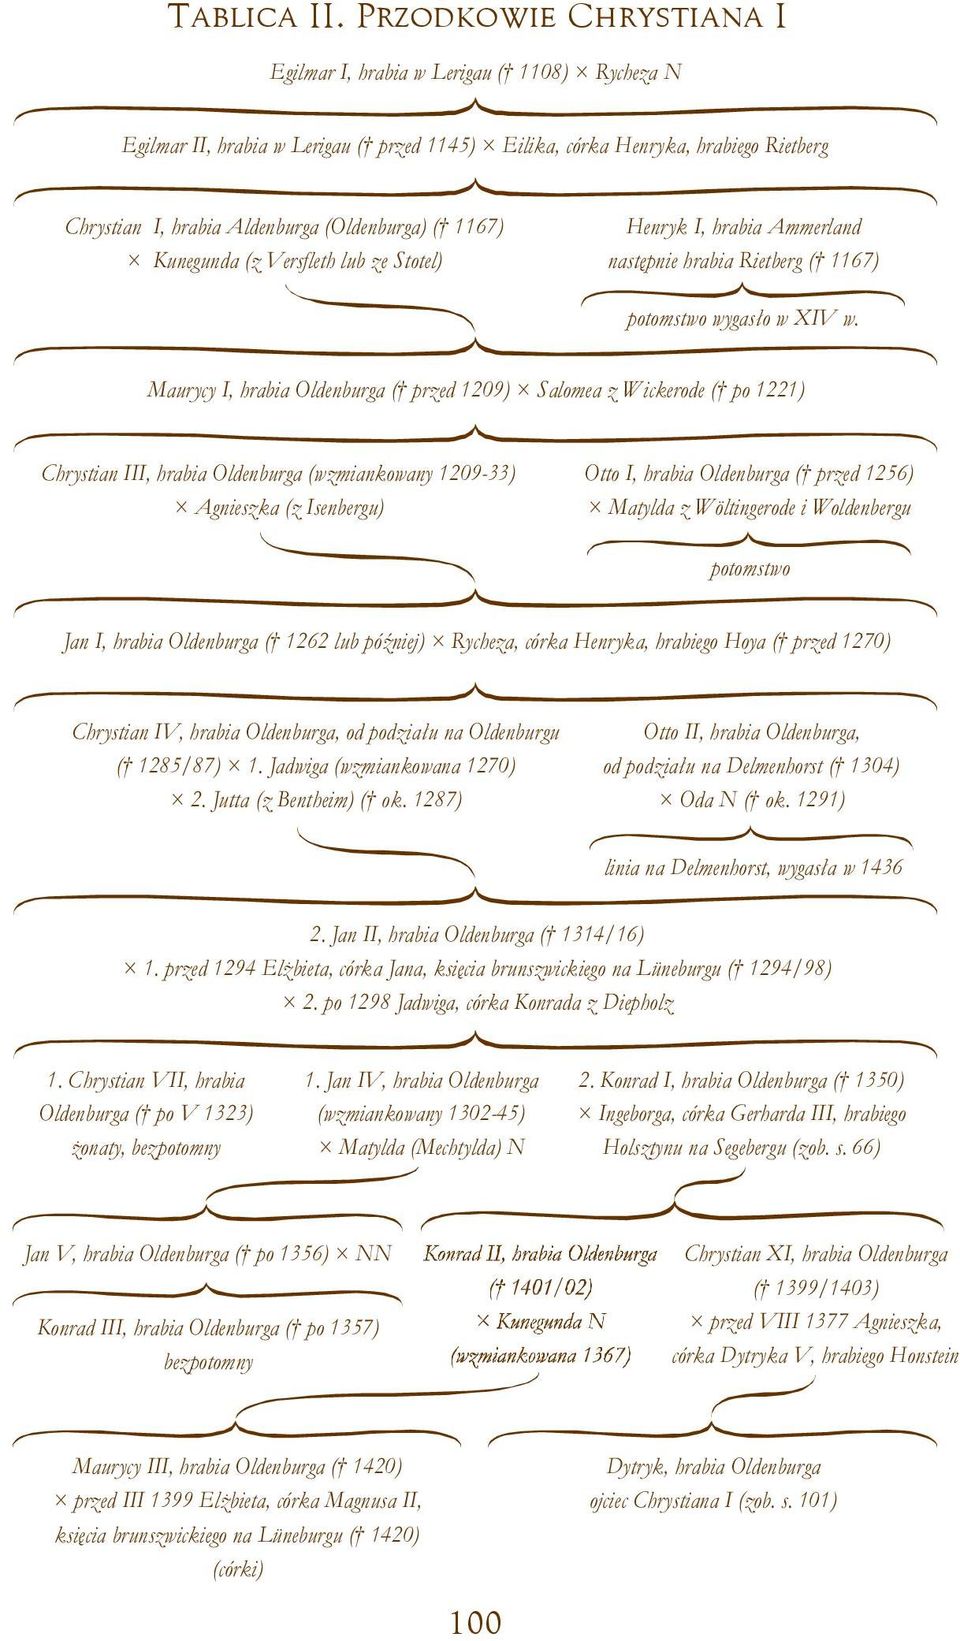 TABLICA II. PRZODKOWIE CHRYSTIANA I
Egilmar I, hrabia w Lerigau († 1108) × Rycheza N
Egilmar II, hrabia w Lerigau († przed 1145) × Eilika, córka Henryka, hrabiego Rietberg
Chrystian I, hrabia Aldenburga (Oldenburga) († 1167)
× Kunegunda (z Versfleth lub ze Stotel)
Henryk I, hrabia Ammerland
następnie hrabia Rietberg († 1167)
potomstwo wygasło w XIV w.
Maurycy I, hrabia Oldenburga († przed 1209) × Salomea z Wickerode († po 1221)
Chrystian III, hrabia Oldenburga (wzmiankowany 1209-33)
× Agnieszka (z Isenbergu)
Otto I, hrabia Oldenburga († przed 1256)
× Matylda z Wöltingerode i Woldenbergu
potomstwo
Jan I, hrabia Oldenburga († 1262 lub później) × Rycheza, córka Henryka, hrabiego Hoya († przed 1270)
Chrystian IV, hrabia Oldenburga, od podziału na Oldenburgu
(† 1285/87) × 1. Jadwiga (wzmiankowana 1270)
× 2. Jutta (z Bentheim) († ok. 1287)
Otto II, hrabia Oldenburga,
od podziału na Delmenhorst († 1304)
× Oda N († ok. 1291)
linia na Delmenhorst, wygasła w 1436
2. Jan II, hrabia Oldenburga († 1314/16)
× 1. przed 1294 Elżbieta, córka Jana, księcia brunszwickiego na Lüneburgu († 1294/98)
× 2. po 1298 Jadwiga, córka Konrada z Diepholz
1. Chrystian VII, hrabia
Oldenburga († po V 1323)
żonaty, bezpotomny
1. Jan IV, hrabia Oldenburga
(wzmiankowany 1302-45)
× Matylda (Mechtylda) N
2. Konrad I, hrabia Oldenburga († 1350)
× Ingeborga, córka Gerharda III, hrabiego
Holsztynu na Segebergu (zob. s. 66)
Jan V, hrabia Oldenburga († po 1356) × NN
Konrad III, hrabia Oldenburga († po 1357)
bezpotomny
Konrad II, hrabia Oldenburga
(† 1401/02)
× Kunegunda N
(wzmiankowana 1367)
Chrystian XI, hrabia Oldenburga
(† 1399/1403)
× przed VIII 1377 Agnieszka,
córka Dytryka V, hrabiego Honstein
Maurycy III, hrabia Oldenburga († 1420)
× przed III 1399 Elżbieta, córka Magnusa II,
księcia brunszwickiego na Lüneburgu († 1420)
(córki)
Dytryk, hrabia Oldenburga
ojciec Chrystiana I (zob. s. 101)
100